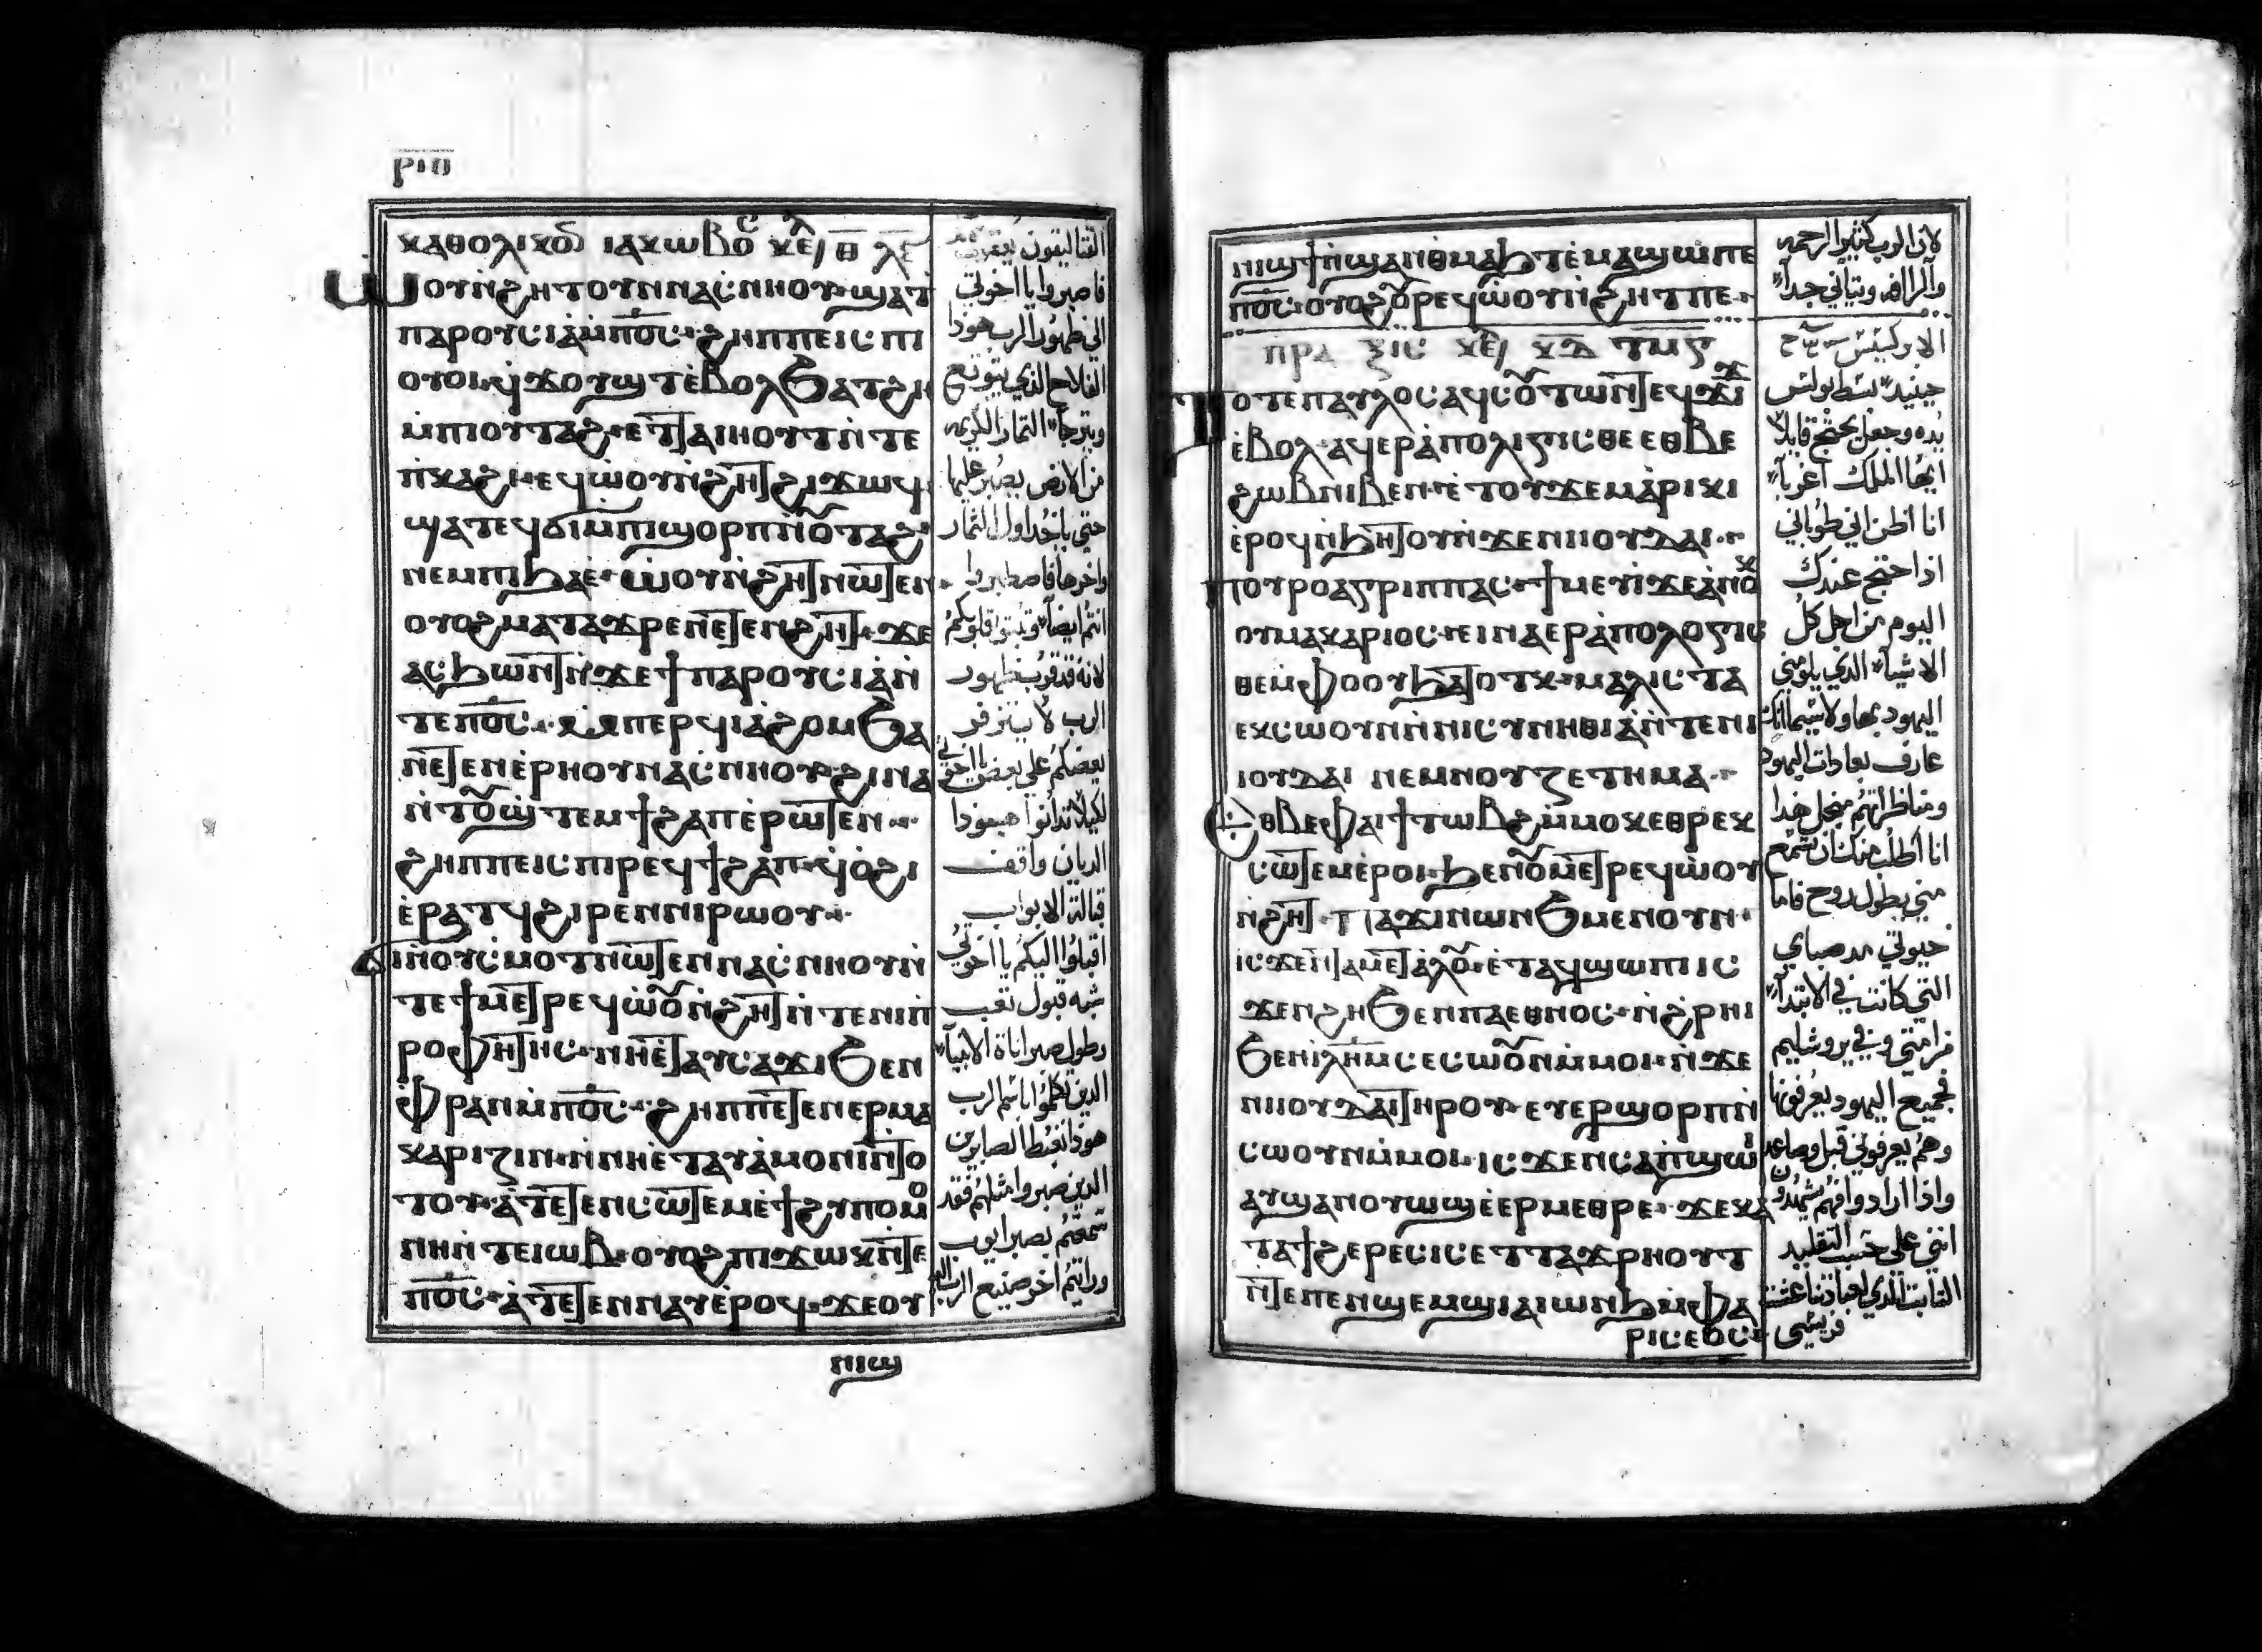 ⲣⲓⲏ
ⲕⲁⲑⲟⲗⲓⲕⲟⲛ ⲓⲁⲕⲱⲃⲟⲥ ⲕⲉ ⲑ ⲗⲉ
ⲱⲟⲩⲛ̀ϩⲏⲧ ⲟⲩⲛ ⲛⲁⲥ̀ⲛⲏⲟⲩ ϣⲁϯ
ⲡⲁⲣⲟⲩⲥⲓⲁ̀ ⲙ̀ⲡⲟ̅ⲥ̅ · ϩⲏⲡⲡⲉ ⲓⲥ ⲡⲓ
ⲟⲩⲟⲓ ϥ̀ϫⲟⲩϣⲧ ⲉ̀ⲃⲟⲗ ϧⲁⲧϩⲏ
ⲙ̀ⲡⲓⲟⲩⲧⲁϩ · ⲉⲧⲧⲁⲓⲏⲟⲩⲧ ⲛ̀ⲧⲉ
ⲡ̀ⲕⲁϩⲓ · ⲉϥⲱ̀ⲟⲩⲛ̀ϩⲏⲧ ϩⲓϫⲱϥ
ϣⲁⲧⲉϥϭⲓ ⲙ̀ⲡⲓϣⲟⲣⲡ ⲛ̀ⲟⲩⲧⲁϩ
ⲛⲉⲙ ⲡⲓϧⲁⲉ̀ · ⲱ̀ⲟⲩⲛ̀ϩⲏⲧ ⲛⲱⲧⲉⲛ
ⲟⲩⲟϩ ⲙⲁⲧⲁϫⲣⲉ ⲛⲉⲧⲉⲛϩⲏⲧ · ϫⲉ
ⲁⲥϧⲱⲛⲧ ⲛ̀ϫⲉ ϯⲡⲁⲣⲟⲩⲥⲓⲁ̀ ⲛ̀
ⲧⲉ ⲡⲟ̅ⲥ̅ · ⲙ̀ⲡⲉⲣϥⲓⲁ̀ϩⲟⲙ ϧⲁ
ⲛⲉⲧⲉⲛⲉ̀ⲣⲏⲟⲩ ⲛⲁⲥ̀ⲛⲏⲟⲩ · ϩⲓⲛⲁ
ⲛ̀ⲧⲟⲩϣ̀ⲧⲉⲙϯϩⲁⲡ ⲉ̀ⲣⲱⲧⲉⲛ
ϩⲏⲡⲡⲉ ⲓⲥ ⲡⲓⲣⲉϥϯϩⲁⲡ · ϥ̀ⲟ̀ϩⲓ
ⲉ̀ⲣⲁⲧϥ ϩⲓⲣⲉⲛ ⲛⲓⲣⲱⲟⲩ
ϭⲓ ⲛ̀ⲟⲩⲥ̀ⲙⲟⲧ ⲛⲱⲧⲉⲛ ⲛⲁⲥ̀ⲛⲏⲟⲩ ⲛ̀
ⲧⲉ ϯⲙⲉⲧⲣⲉϥⲱ̀ⲟⲩⲛ̀ϩⲏⲧ ⲛ̀ⲧⲉ ⲛⲓⲡ̀
ⲣⲟⲫⲏⲧⲏⲥ · ⲛⲏⲉ̀ⲧⲁⲩⲥⲁϫⲓ ϧⲉⲛ
ⲫ̀ⲣⲁⲛ ⲙ̀ⲡⲟ̅ⲥ̅ · ϩⲏⲡⲡⲉ ⲧⲉⲛⲉⲣⲙⲁ
ⲕⲁⲣⲓⲍⲓⲛ ⲛ̀ⲛⲏⲉ̀ⲧⲁⲩⲁ̀ⲙⲟⲛⲓ ⲛ̀ⲧⲟ
ⲧⲟⲩ · ⲁ̀ⲧⲉⲧⲉⲛⲥⲱⲧⲉⲙ ⲉ̀ϯϩⲩⲡⲟⲙⲟ
ⲛⲏ ⲛ̀ⲧⲉ ⲓⲱⲃ · ⲟⲩⲟϩ ⲡⲓϫⲱⲕ ⲛ̀ⲧⲉ
ⲡⲟ̅ⲥ̅ · ⲁ̀ⲧⲉⲧⲉⲛⲛⲁⲩ ⲉ̀ⲣⲟϥ · ϫⲉ ⲟⲩ
ⲛⲓϣ
القتاليقون يعقوب
فاصبروا يا اخوتي
الي ظهور الرب هوذا
الفلاح الذي يتوقع
ويترجا التمار الكريمه
من الارض يصبر عليها
حتي ياخذ اول التمار
واخرها فاصطبروا
انتم ايضا وثبتوا قلوبكم
لانه قد قرب ظهور
الرب لا يتنزفر
بعضكم علي بعض يا اخوتي
لكيلا تدانوا هوذا
الديان واقف
قبالة الابواب
اقبلوا اليكم يا اخوتي
شبه قبول تعب
وطول صبر اناة الانبيا
الذين تكلموا باسم الرب
هوذا نغبط الصابرين
الذين صبروا مثلهم فقد
سمعتم بصبر ايوب
ورايتم اخر صنيع الرب
ⲛⲓϣϯ ⲛ̀ϣⲁⲛⲑⲙⲁϧⲧ ⲉ̀ⲙⲁϣⲱ ⲡⲉ
ⲡⲟ̅ⲥ̅ · ⲟⲩⲟϩ ⲟⲩⲣⲉϥⲱ̀ⲟⲩⲛ̀ϩⲏⲧ ⲡⲉ
ⲡⲣⲁⲝⲓⲥ ⲕⲉ ⲕⲇ ⲧⲙⲋ
ⲧⲟⲧⲉ ⲡⲁⲩⲗⲟⲥ ⲁϥⲥⲟⲩⲧⲱⲛ ⲧⲉϥϫⲓϫ
ⲉ̀ⲃⲟⲗ · ⲁϥⲉⲣⲁ̀ⲡⲟⲗⲓⲅⲓⲥⲑⲉ ⲉⲑⲃⲉ
ϩⲱⲃ ⲛⲓⲃⲉⲛ · ⲉ̀ⲧⲟⲩϫⲉⲙⲁ̀ⲣⲓⲕⲓ
ⲉ̀ⲣⲟϥ ⲛ̀ϧⲏⲧⲟⲩ ⲛ̀ϫⲉ ⲛⲓⲓⲟⲩⲇⲁⲓ
ⲡⲟⲩⲣⲟ ⲁⲅⲣⲓⲡⲡⲁⲥ · ϯⲙⲉⲩⲓ̀ ϫⲉ ⲁ̀ⲛⲟⲕ
ⲟⲩⲙⲁⲕⲁⲣⲓⲟⲥ · ⲉⲓⲛⲁⲉⲣⲁ̀ⲡⲟⲗⲟⲅⲓⲥ
ⲑⲉ ⲙ̀ⲫⲟⲟⲩ ϧⲁⲧⲟⲧⲕ · ⲙⲁⲗⲓⲥⲧⲁ
ⲉⲕⲥⲱⲟⲩⲛ ⲛ̀ⲛⲓⲥⲩⲛⲏⲑⲓⲁ̀ ⲛ̀ⲧⲉ ⲛⲓ
ⲓⲟⲩⲇⲁⲓ ⲛⲉⲙ ⲛⲟⲩⲍⲉⲧⲏⲙⲁ
ⲉⲑⲃⲉ ⲫⲁⲓ ϯⲧⲱⲃϩ ⲙ̀ⲙⲟⲕ ⲉⲑⲣⲉⲕ
ⲥⲱⲧⲉⲙ ⲉ̀ⲣⲟⲓ · ϧⲉⲛ ⲟⲩⲙⲉⲧⲣⲉϥⲱ̀ⲟⲩ
ⲛ̀ϩⲏⲧ · ⲡⲁϫⲓⲛⲱⲛϧ ⲙⲉⲛ ⲟⲩⲛ ·
ⲓⲥϫⲉⲛ ⲧⲁⲙⲉⲧⲁ̀ⲗⲟⲩ · ⲉ̀ⲧⲁϥϣⲱⲡⲓ ⲓⲥ
ϫⲉⲛ ϩⲏ ϧⲉⲛ ⲡⲁⲉⲑⲛⲟⲥ · ⲛ̀ϩ̀ⲣⲏⲓ
ϧⲉⲛ ⲓ̀ⲗⲏⲙ ⲥⲉⲥⲱⲟⲩⲛ ⲙ̀ⲙⲟⲓ · ⲛ̀ϫⲉ
ⲛⲓⲓⲟⲩⲇⲁⲓ ⲧⲏⲣⲟⲩ · ⲉⲩⲉⲣϣⲟⲣⲡ ⲛ̀
ⲥⲱⲟⲩⲛ ⲙ̀ⲙⲟⲓ · ⲓⲥϫⲉⲛ ⲥⲁⲡϣⲱⲓ
ⲁⲩϣⲁⲛⲟⲩⲱϣ ⲉ̀ⲉⲣⲙⲉⲑⲣⲉ · ϫⲉ ⲕⲁ
ⲧⲁ ϯϩⲉⲣⲉⲥⲓⲥ ⲉⲧⲧⲁϫⲣⲏⲟⲩⲧ
ⲛ̀ⲧⲉ ⲡⲉⲛϣⲉⲙϣⲓ ⲁⲓⲱⲛϧ ⲙ̀ⲫⲁ
ⲣⲓⲥⲉⲟⲥ
لان الرب كثير الرحمه
حينيذ بسط بولس
يده وجعل يحتج قايلا
ايها الملك اغريبا
انا اظن اني طوباني
اذا احتج عندك
اليوم من اجل كل
الاشيا الذي يلومني
اليهود بها ولاسيما انك
عارف بعادات اليهود
ومناظراتهم من اجل هذا
انا اطلب منك ان تسمع
مني بطول روح فاما
حيوتي مد صباي
التي كانت في الابتدا
من امتي وفي يروشليم
فجميع اليهود يعرفونها
وهم يعرفوني قبل
واذا ارادوا فهم يشهدون
انني علي حسب التقليد
الثابت الذي لعبادتنا عشت
فريسي